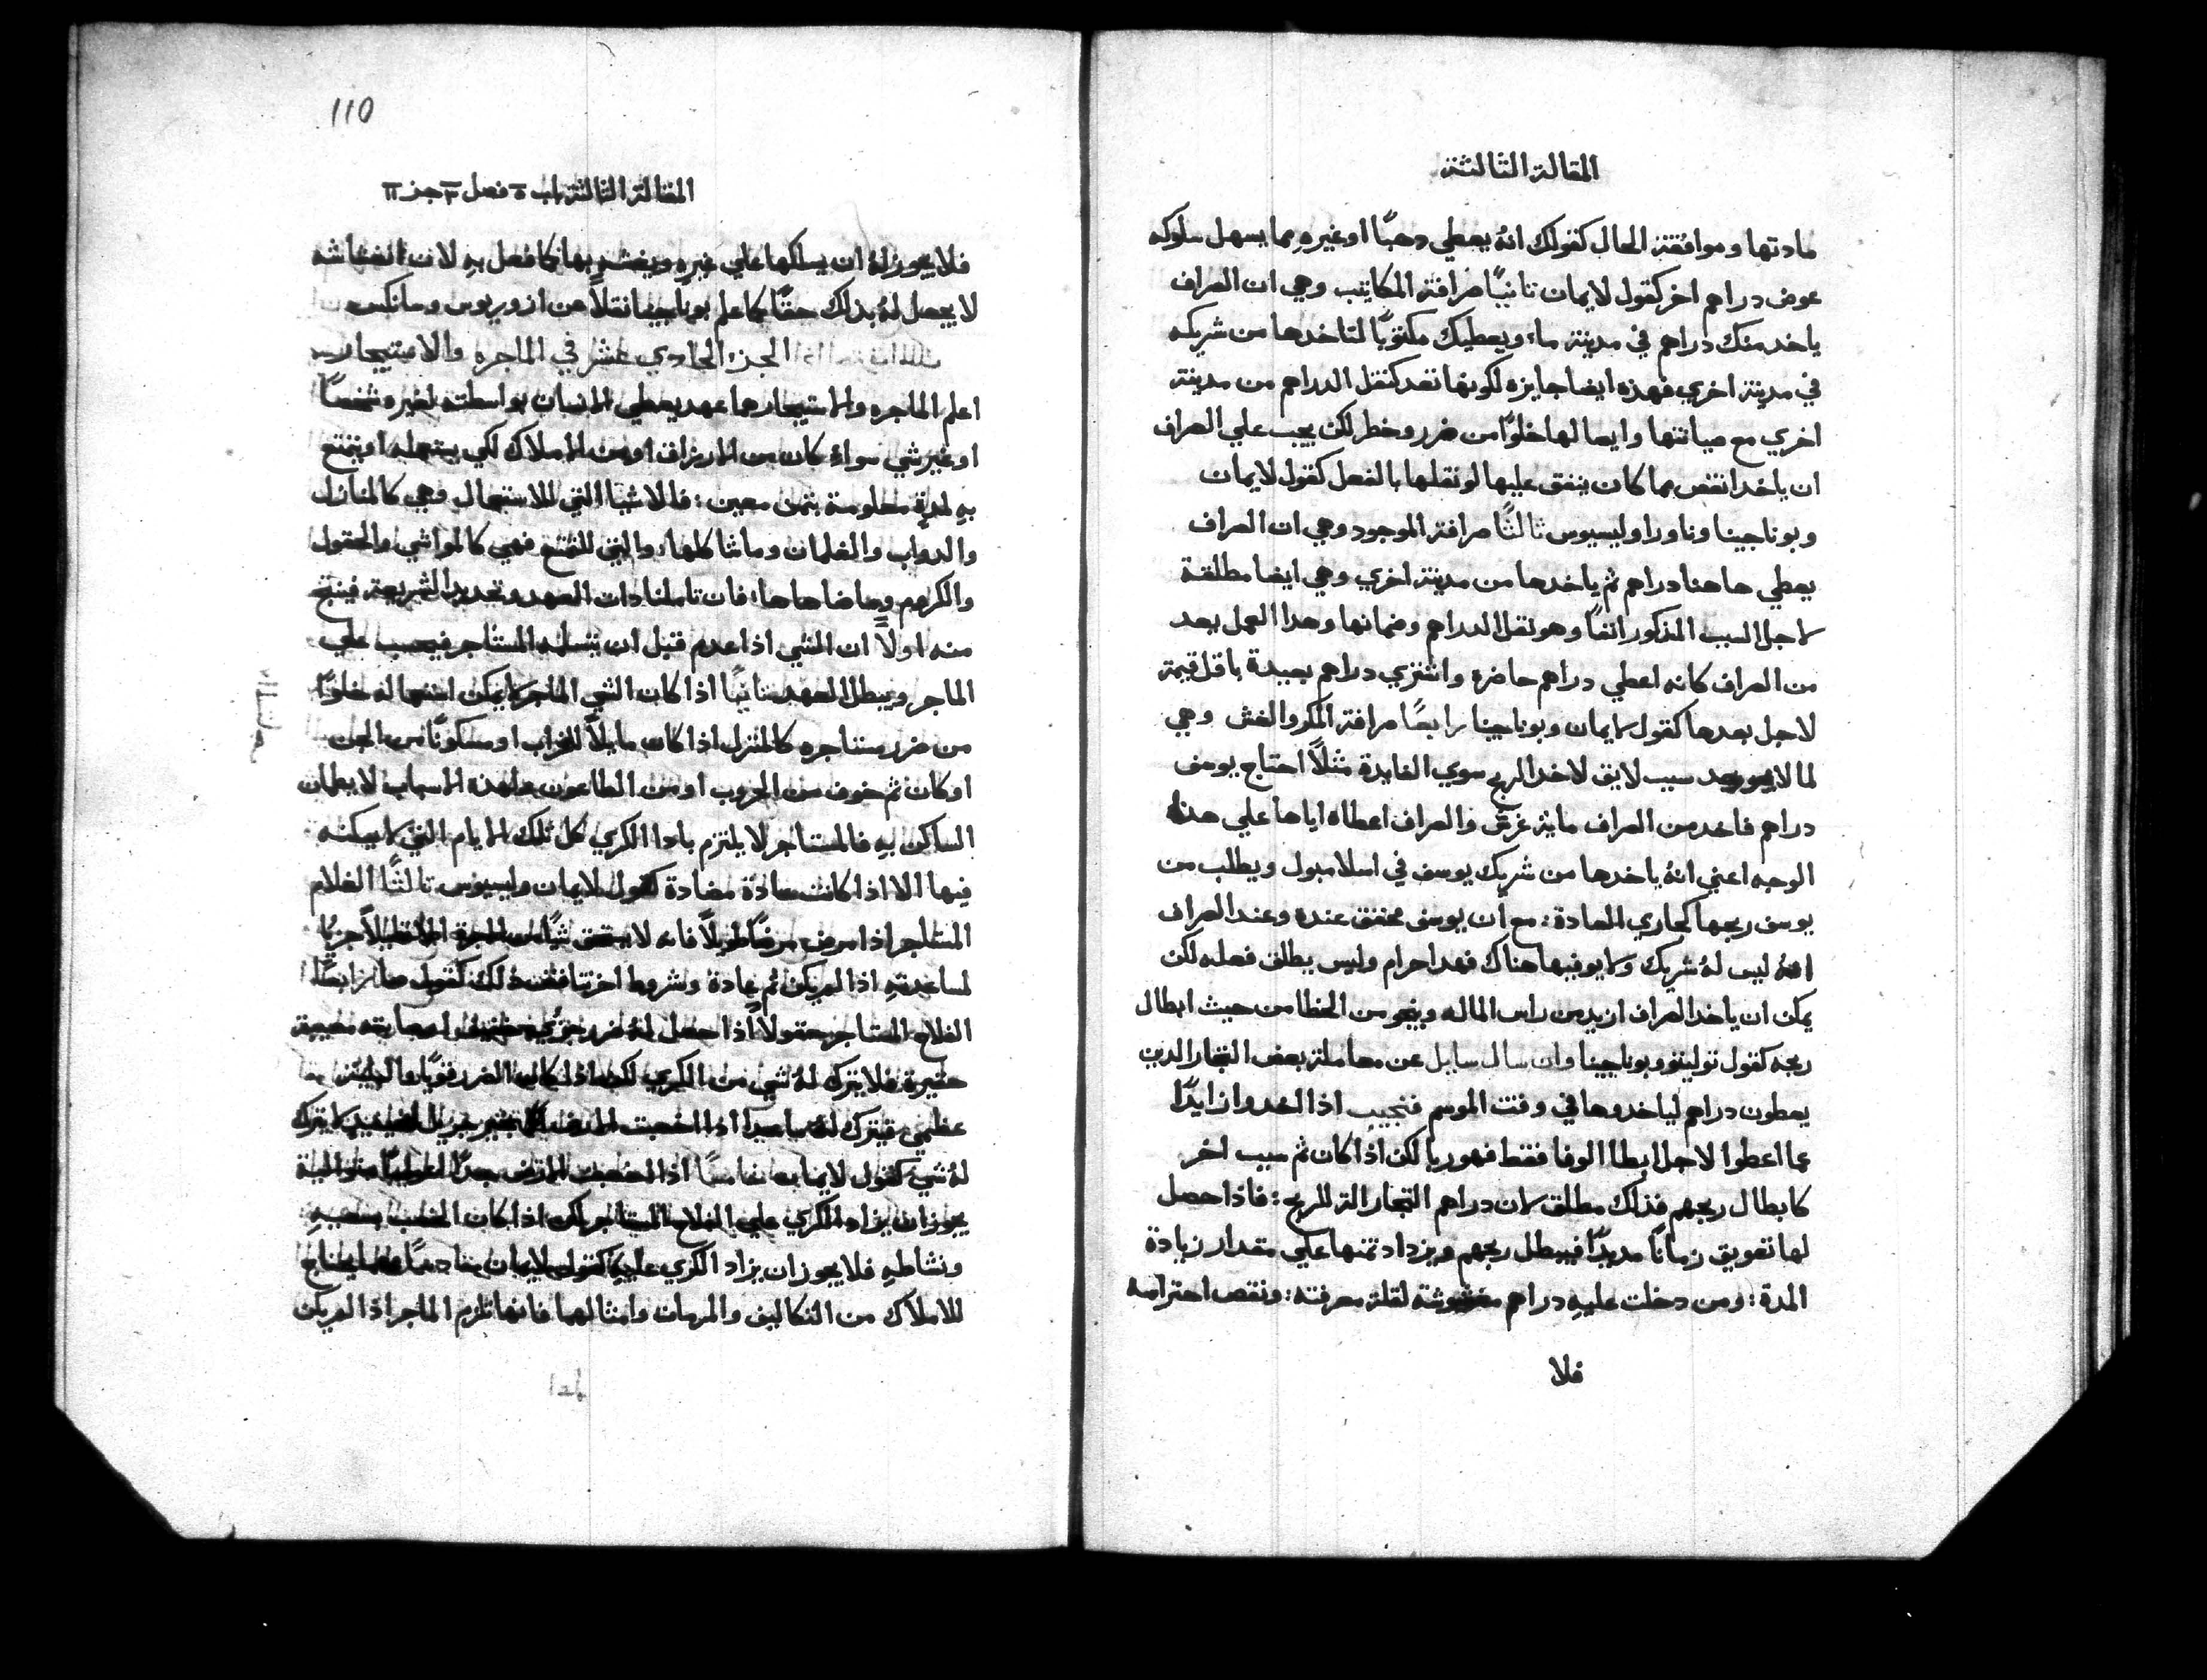 المقالة الثالثة
مادتها وموافقة الحال كقولك انهُ يعطي دهبًا او غيرهِ مما يسهل سلوكه
عوض دراهم اخر كقول لايمان تانيًا صرافة المكاتيب وهي ان الصراف
ياخد منك دراهم في مدينة ما، ويعطيك مكتوبًا لتاخدها من شريكه
في مدينة اخري فهده ايضا جايزه لكونها تعد كنقل الدراهم من مدينة
اخري مع صيانتها وايصالها خلوًا من ضرر وخطر لكن يجب علي الصراف
ان ياخد انقص مما كان ينفق عليها لو نقلها بالفعل كقول لايمان
وبوناجينا وناورا وليسيوس تالتًا صرافة الموجود وهي ان الصراف
يعطي هاهنا دراهم ثم ياخدها من مدينة اخري وهي ايضا مطلقة
لاجل السبب المذكور انفًا وهو نقل الدراهم وضمانها وهدا العمل يعد
من الصراف كانه اعطي دراهم حاضره واشتري دراهم بعيدة باقل قيمة
لاجل بعدها كقول لايمان وبوناجينا رابعًا صرافة المكر والغش وهي
لما لا يوجد سبب لايق لاخد الربح سوي الفايدة مثلاً احتاج يوسف
دراهم فاخد من الصراف ماية غرش فالصراف اعطاه اياها علي هدا
الوجه اعني انهُ ياخدها من شريك يوسف في اسلامبول ويطلب من
يوسف ربحها كجاري العادة: مع ان يوسف محقق عنده وعند الصراف
انهُ ليس لهُ شريك ولا يوفيها هناك فهدا حرام وليس يطلق فعله لكن
يمكن ان ياخد الصراف ازيد من راس الماله وينجو من الخطا من حيث ابطال
ربحه كقول توليتو وبوناجينا وان سال سايل عن معاملة بعض التجار الدين
يعطون دراهم لياخدوها في وقت الموسم فنجيب اذا اخدوا زايدًا
عما اعطوا لاجل ابطا الوفا فقط فهو ربا لكن اذا كان ثم سبب اخر
كابطال ربحهم فذلك مطلق لان دراهم التجار الة للربح: فاذا حصل
لها تعويق زمانًا مديدًا فيبطل ربحهم ويزداد تمنها علي مقدار زيادة
المدة: ومن دخلت عليهِ دراهم مغشوشة لقلة معرفته: ونقص احترامه
فلا
110
المقالة الثالثة باب ٥ فصل ٣ جز ١١
فلا يجوز لهُ ان يسلكها علي غيرهِ ويغشهِ بها كما فعل بهِ لان الغشاشه
لا يحصل لهُ بذلك حقًا كما علم بوناجينا نقلاً عن ازوريوس
الجزء الحادي عشر في الماجره والاستيجار
اعلم الماجره والاستيجار هما عهد يعطي الانسان بواسطته لغيره شخصًا
او غير شي سواء كان من الارزاق او من الاملاك لكي يستعمله او يتمتع
بهِ لمدة معلومة بثمن معين: فالاشيا التي للاستعمال وهي كالمنازل
والدواب والغلمان وما شاكلها، والتي للتمتع فهي كالمواشي والحقول
والكروم وما ضاهاها، فان تاملنا دات العهد وتحديد الشريعة فينتج
منه اولاً ان الشي اذا عدم قبل ان يتسلمه المستاجر فيحسب علي
الماجر ويبطل العهد تانيًا اذا كان الشي الماجر لا يمكن استعماله خلوًا
من ضرر مستاجره كالمنزل اذا كان مايلاً للخراب او مسكونًا من الجن
او كان ثم خوف من الحروب او من الطاعون هدة الاسباب لا يطمان
الساكن بهِ فالمستاجر لا يلتزم بادا الكري كل تلك الايام التي لا يسكنه
فيها الا اذا كانت عادة مضادة كقول لايمان وليسيوس تالتًا الغلام
المستاجر اذا مرض مرضًا طويلاً فانه لا يستحق شيًا من الاجرة الا قليلاً جزيًا
لمساعدتهِ اذا لم يكن ثم عادة وشروط اخر تنافض ذلك كقول رابعًا
الفلاح المستاجر حقولاً اذا حصل لهُ ضرر جزي اصابته مصيبة
حقيرة فلا يترك لهُ شي من الكري لكن اذا كان الضرر قويًا والبلية
عظيمي فيترك لهُ اذا اخصبت الارض لا يترك
لهُ شي كقول لايمان خامسًا اذا اخصبت الارض جدًا
يجوز ان يزاد الكري علي الفلاح المستاجر لكن اذا كان الخصب بتعبهِ
ونشاطهِ فلا يجوز ان يزاد الكري عليهِ كقول لايمان سادسًا يحتاج
للاملاك من التكاليف والمرمات وامثالهما فانها تلزم الماجر اذا لم يكن